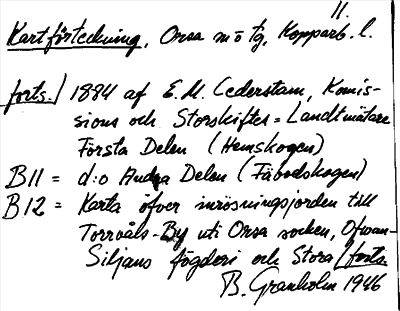 11.
Kartförteckning, Orsa m o tg, Kopparb. l.
forts./ 1884 af E. M. Cederstam, Komis-
sions och Storskiftes = Landtmätare
Första Delen (Hemskogen)
B11 = d:o Andra Delen (Fäbodskogen)
B12 = Karta öfver inrösningsjorden till
Torrvåls-By uti Orsa socken, Ofvan-
Siljans fögderi och Stora /forts.
B. Granholm 1946